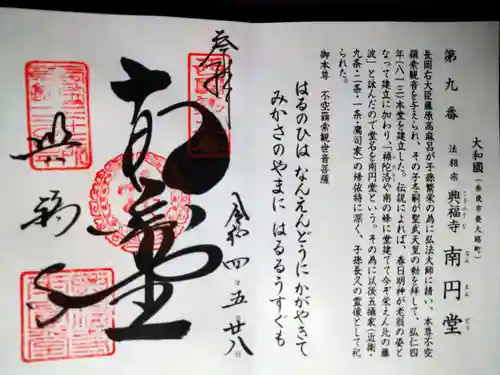 大和國（奈良市登大路町）
第九番 法相宗 興福寺 南円堂
こうふくじ なん えん どう
長岡右大臣藤原高麻呂が子孫繁栄の為に弘法大師に請い、本尊不空
羂索観音を与えられ、その子冬嗣が聖武天皇の勅を拝して、弘仁四
年（八一三）本堂を建立した。伝説によれば、春日明神が老翁の姿と
なって建立に加わり、「補陀洛や南の峰に堂建てて今ぞ栄えん北の藤
波」と詠んだので堂名を南円堂という。その為に以後五摂家（近衛・
九条・二条・一条・鷹司家）の帰依特に深く、子孫長久の霊像として祀
られた。
御本尊 不空羂索観世音菩薩
はるのひは なんえんどうに かがやきて
みかさのやまに はるるうすぐも
奉拝
令和四年五月廿八日
南円堂
興福寺